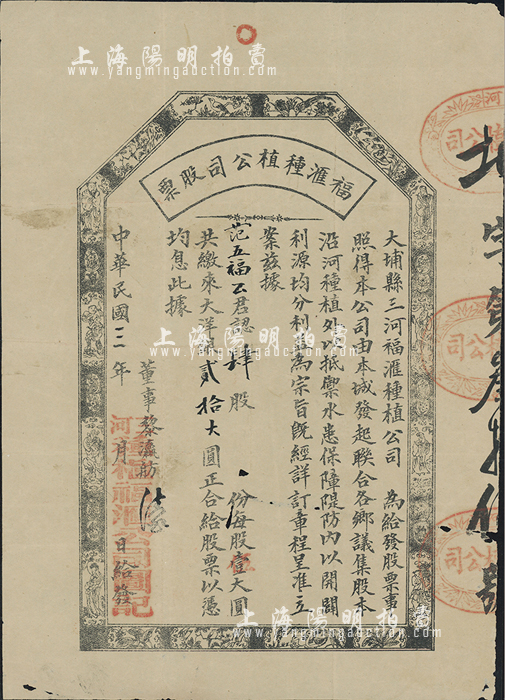 上海陽明拍賣
www.yangmingauction.com
福滙種植公司股票
大埔縣三河福滙種植公司 為給發股票事
照得本公司由本城發起聯合各鄉議集股本
沿河種植外以抵禦水患保障隄防內以開闢
利源均分利益為宗旨既經詳訂章程呈准立
案茲據
范五福公君認肆股 份每股 大圓
共繳來大洋 貳拾大圓正合給股票以憑
均息此據
董事黎
中華民國三年 月 日給發
上海陽明拍賣
www.yangmingauction.com